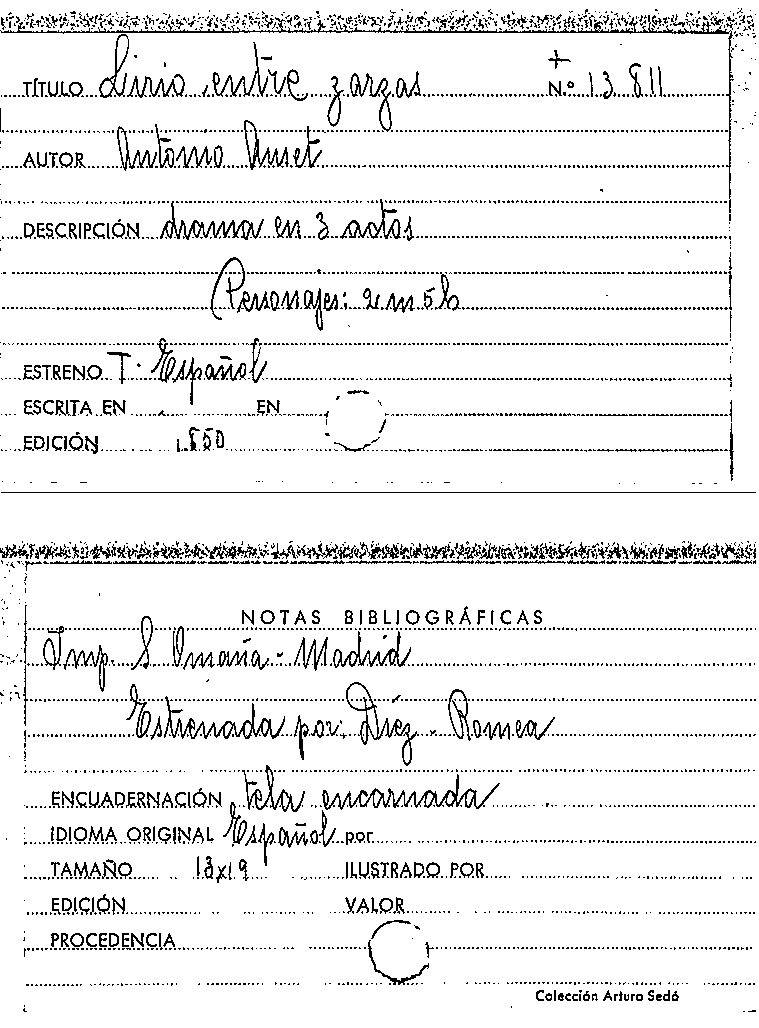 TÍTULO Lirio entre zarzas N.º 13 811
AUTOR Antonio Auset
DESCRIPCIÓN drama en 3 actos
Personajes: 2 m 5 h
ESTRENO T. Español
ESCRITA EN EN
EDICIÓN 1850
NOTAS BIBLIOGRÁFICAS
Imp. S. Omaña - Madrid
Estrenada por: Díez - Romea
ENCUADERNACIÓN tela encarnada
IDIOMA ORIGINAL Español por
TAMAÑO 13x19 ILUSTRADO POR
EDICIÓN VALOR
PROCEDENCIA
Colección Arturo Sedó